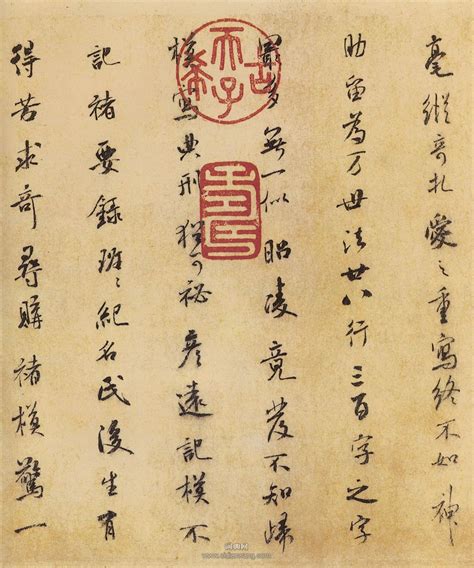 毫縱奇札愛々重寫終不如神
助留為万世法廿八行三百字之字
最多無一似昭陵竟發不知歸
模寫典刑猶可秘彥遠記模不
記褚要錄班々紀名氏後生有
得苦求奇尋購褚模驚一
古希天子
壽